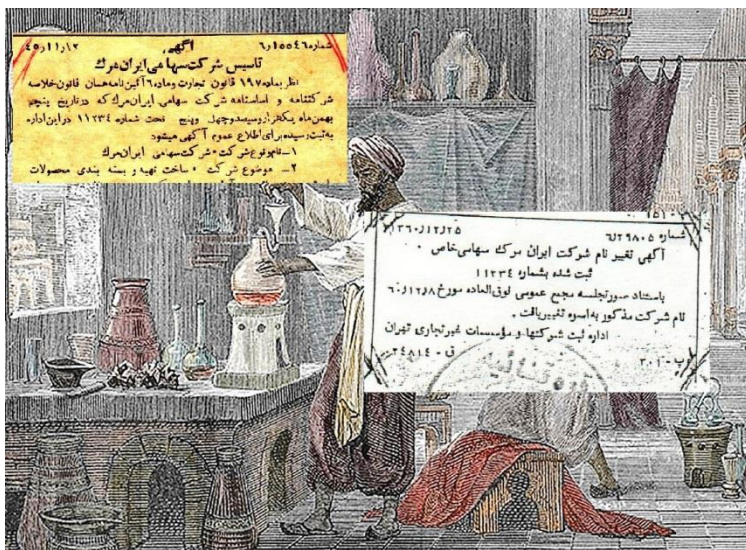 شماره ۶٫۱۵۵۴۶ آگهی ۴۵٫۱۱٫۱۲
تاسیس شرکت سهامی ایران مرک
نظر بماده ۱۹۷ قانون تجارت و ماده ۶ آئین نامه همان قانون خلاصه
شرکتنامه و اساسنامه شرکت سهامی ایران مرک که در تاریخ پنجم
بهمن ماه یکهزار و سیصد و چهل و پنج تحت شماره ۱۱۲۳۴ در این اداره
به ثبت رسیده برای اطلاع عموم آگهی میشود
۱ـ نام و نوع شرکت ، شرکت سهامی ایران مرک
۲ـ موضوع شرکت ، ساخت تهیه و بسته بندی محصولات
شماره ۶٫۲۹۸۰۵ ۱۳۶۰٫۱۲٫۲۵
آگهی تغییر نام شرکت ایران مرک سهامی خاص
ثبت شده بشماره ۱۱۲۳۴
باستناد صورتجلسه مجمع عمومی فوق العاده مورخ ۶۰٫۱۲٫۸
نام شرکت مذکور به اسوه تغییر یافت .
اداره ثبت شرکتها و مؤسسات غیرتجاری تهران
ق ـ ۲۴۸۱۴